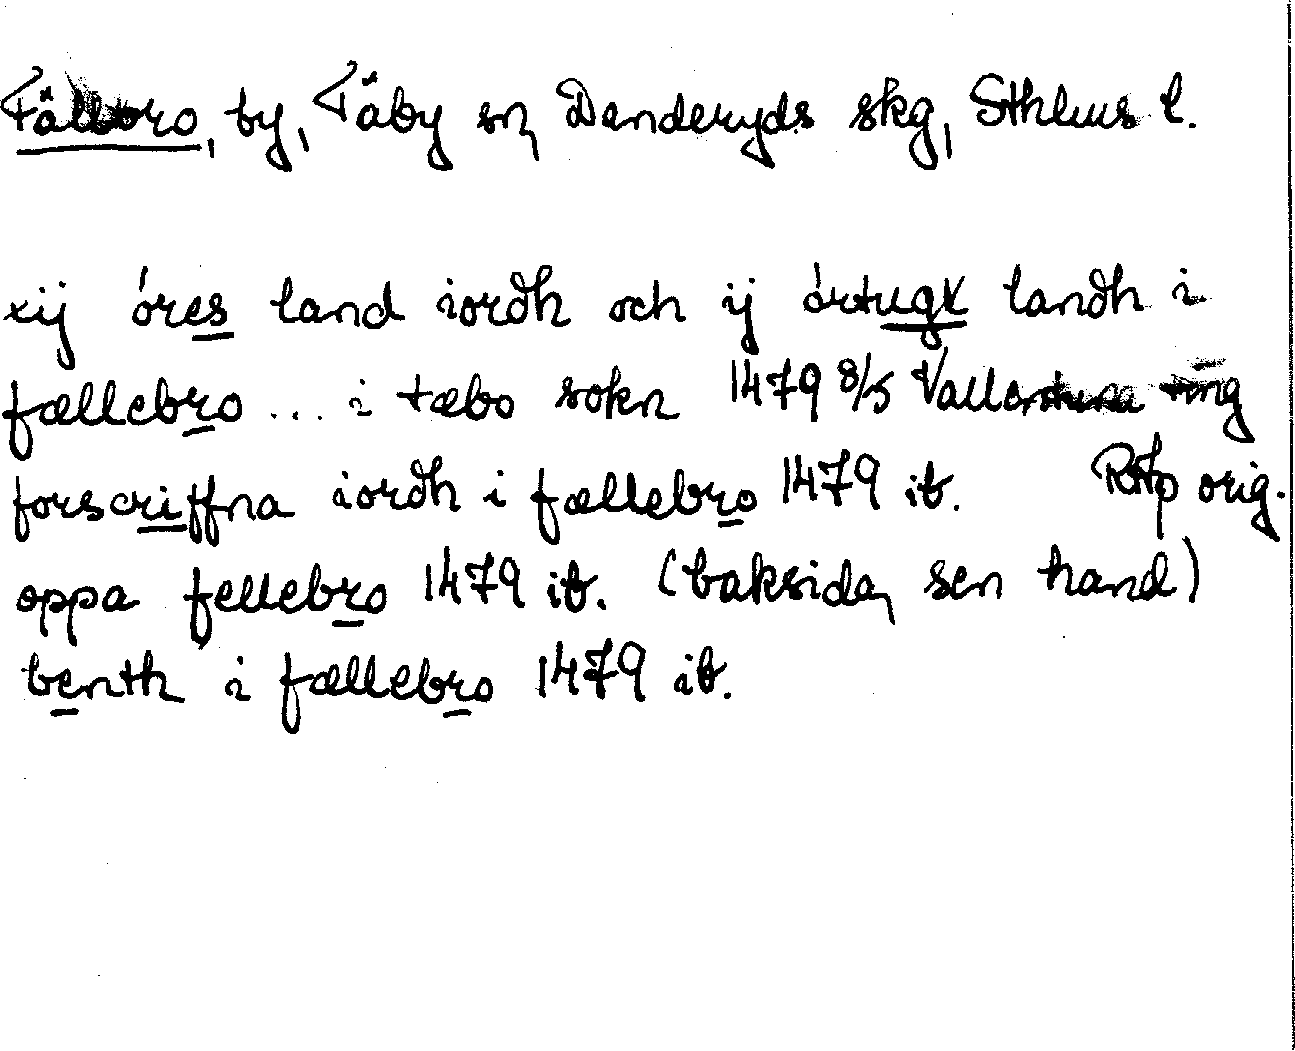 Fällbro, by, Täby sn, Danderyds skg, Sthlms l.
xij óres land iordh och ij órtugx landh i
fællebro ... i tæbo sokn 1479 8/5 Vallentuna ting
forscriffna iordh i fællebro 1479 ib. RAp orig.
oppa fellebro 1479 ib. (baksida, sen hand)
benth i fællebro 1479 ib.